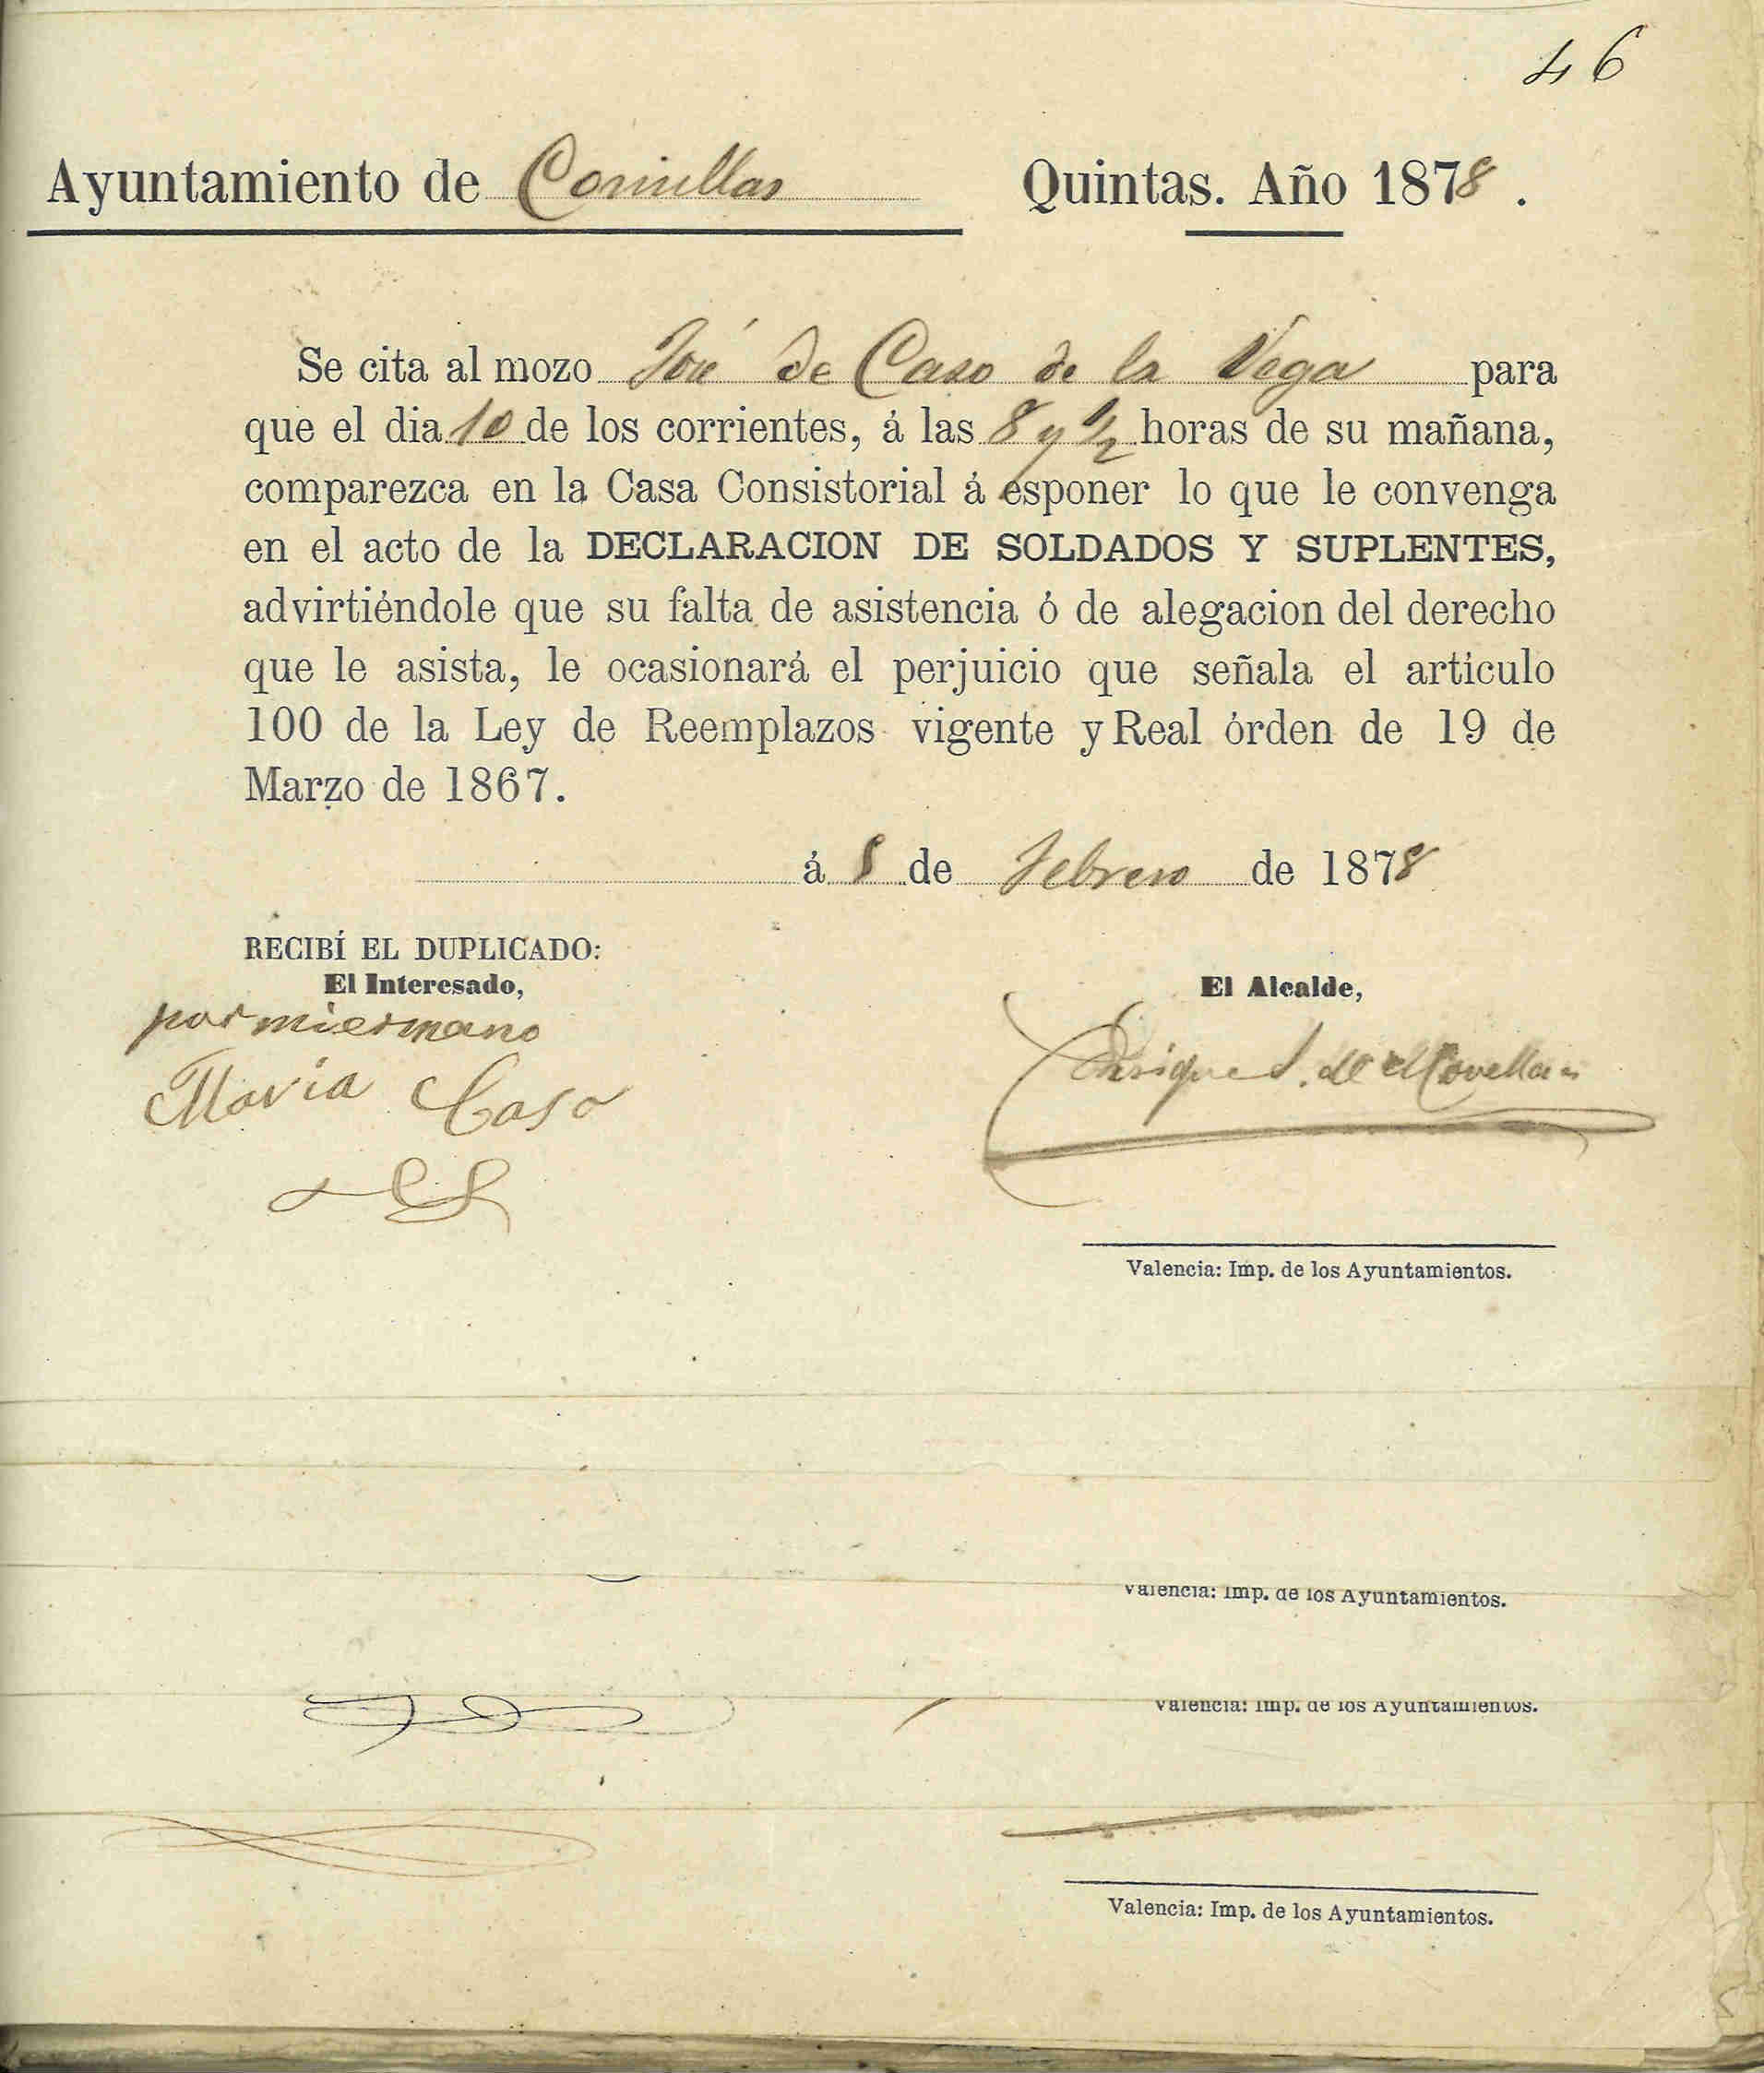 46
Ayuntamiento de Comillas Quintas. Año 1878.
Se cita al mozo José de Caso de la Vega para
que el dia 10 de los corrientes, á las 8 y 1/2 horas de su mañana,
comparezca en la Casa Consistorial á esponer lo que le convenga
en el acto de la DECLARACION DE SOLDADOS Y SUPLENTES,
advirtiéndole que su falta de asistencia ó de alegacion del derecho
que le asista, le ocasionará el perjuicio que señala el artículo
100 de la Ley de Reemplazos vigente y Real órden de 19 de
Marzo de 1867.
á 8 de Febrero de 1878
RECIBÍ EL DUPLICADO:
El Interesado,
por mi ermano
Maria Caso
El Alcalde,
Enrique S. de Movellan
Valencia: Imp. de los Ayuntamientos.
Valencia: Imp. de los Ayuntamientos.
Valencia: Imp. de los Ayuntamientos.
Valencia: Imp. de los Ayuntamientos.